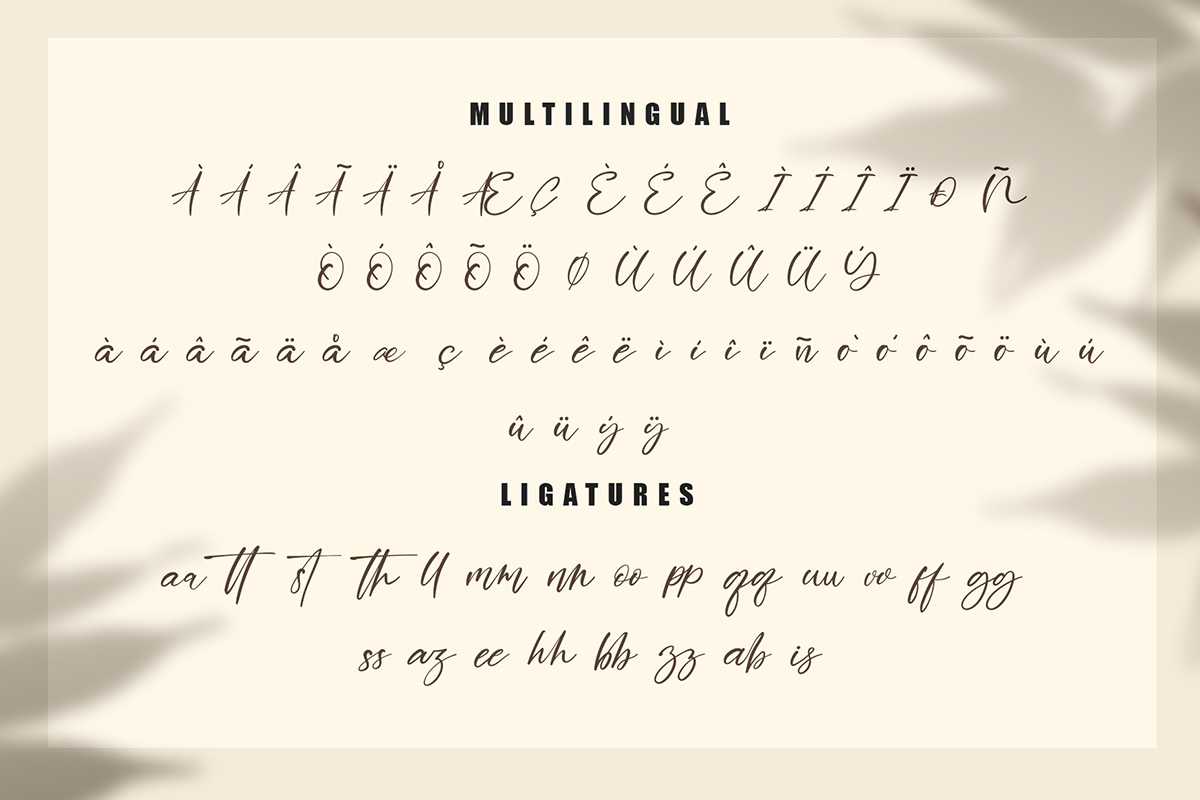 MULTILINGUAL
À Á Â Ã Ä Å Æ Ç È É Ê Ì Í Î Ï Ð Ñ
Ò Ó Ô Õ Ö Ø Ù Ú Û Ü Ý
à á â ã ä å æ ç è é ê ë ì í î ï ñ ò ó ô õ ö ù ú
û ü ý ÿ
LIGATURES
aa tt st th ll mm nn oo pp qq uu vv ff gg
ss az ee hh bb zz ab is